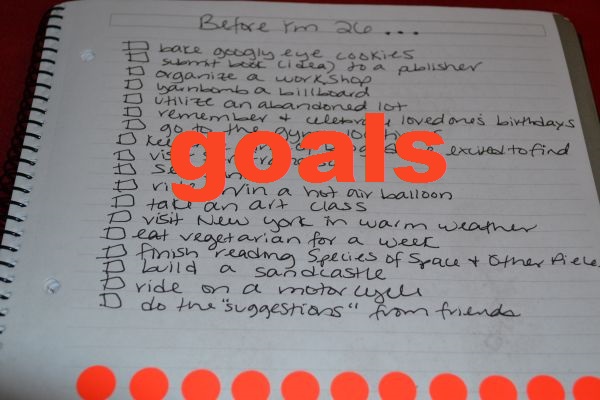 Before I'm 26...
bake googly eye cookies
submit book (idea) to a publisher
organize a workshop
yarnbomb a billboard
utilize an abandoned lot
remember + celebrate loved one's birthdays
go to the gym 100 times
keep excited to find
visit San Francisco
ride in a hot air balloon
take an art class
visit New York in warm weather
eat vegetarian for a week
finish reading Species of Space + Other Pieces
build a sandcastle
ride on a motorcycle
do the "suggestions" from friends
goals